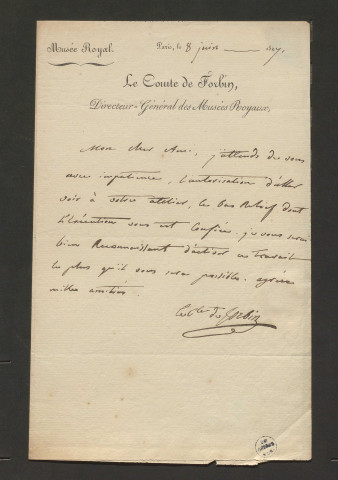 Musée Royal.
Paris, le 8 juin
Le Comte de Forbin,
Directeur-Général des Musées Royaux,
Mon cher Ami, j'attends de vous
avec impatience, l'autorisation d'aller
voir à votre atelier, le bas Relief dont
l'exécution vous est confiée, je vous serai
bien Reconnaissant d'activer ce travail
le plus qu'il vous sera possible. agréez
mille amitiés
le Cte de Forbin